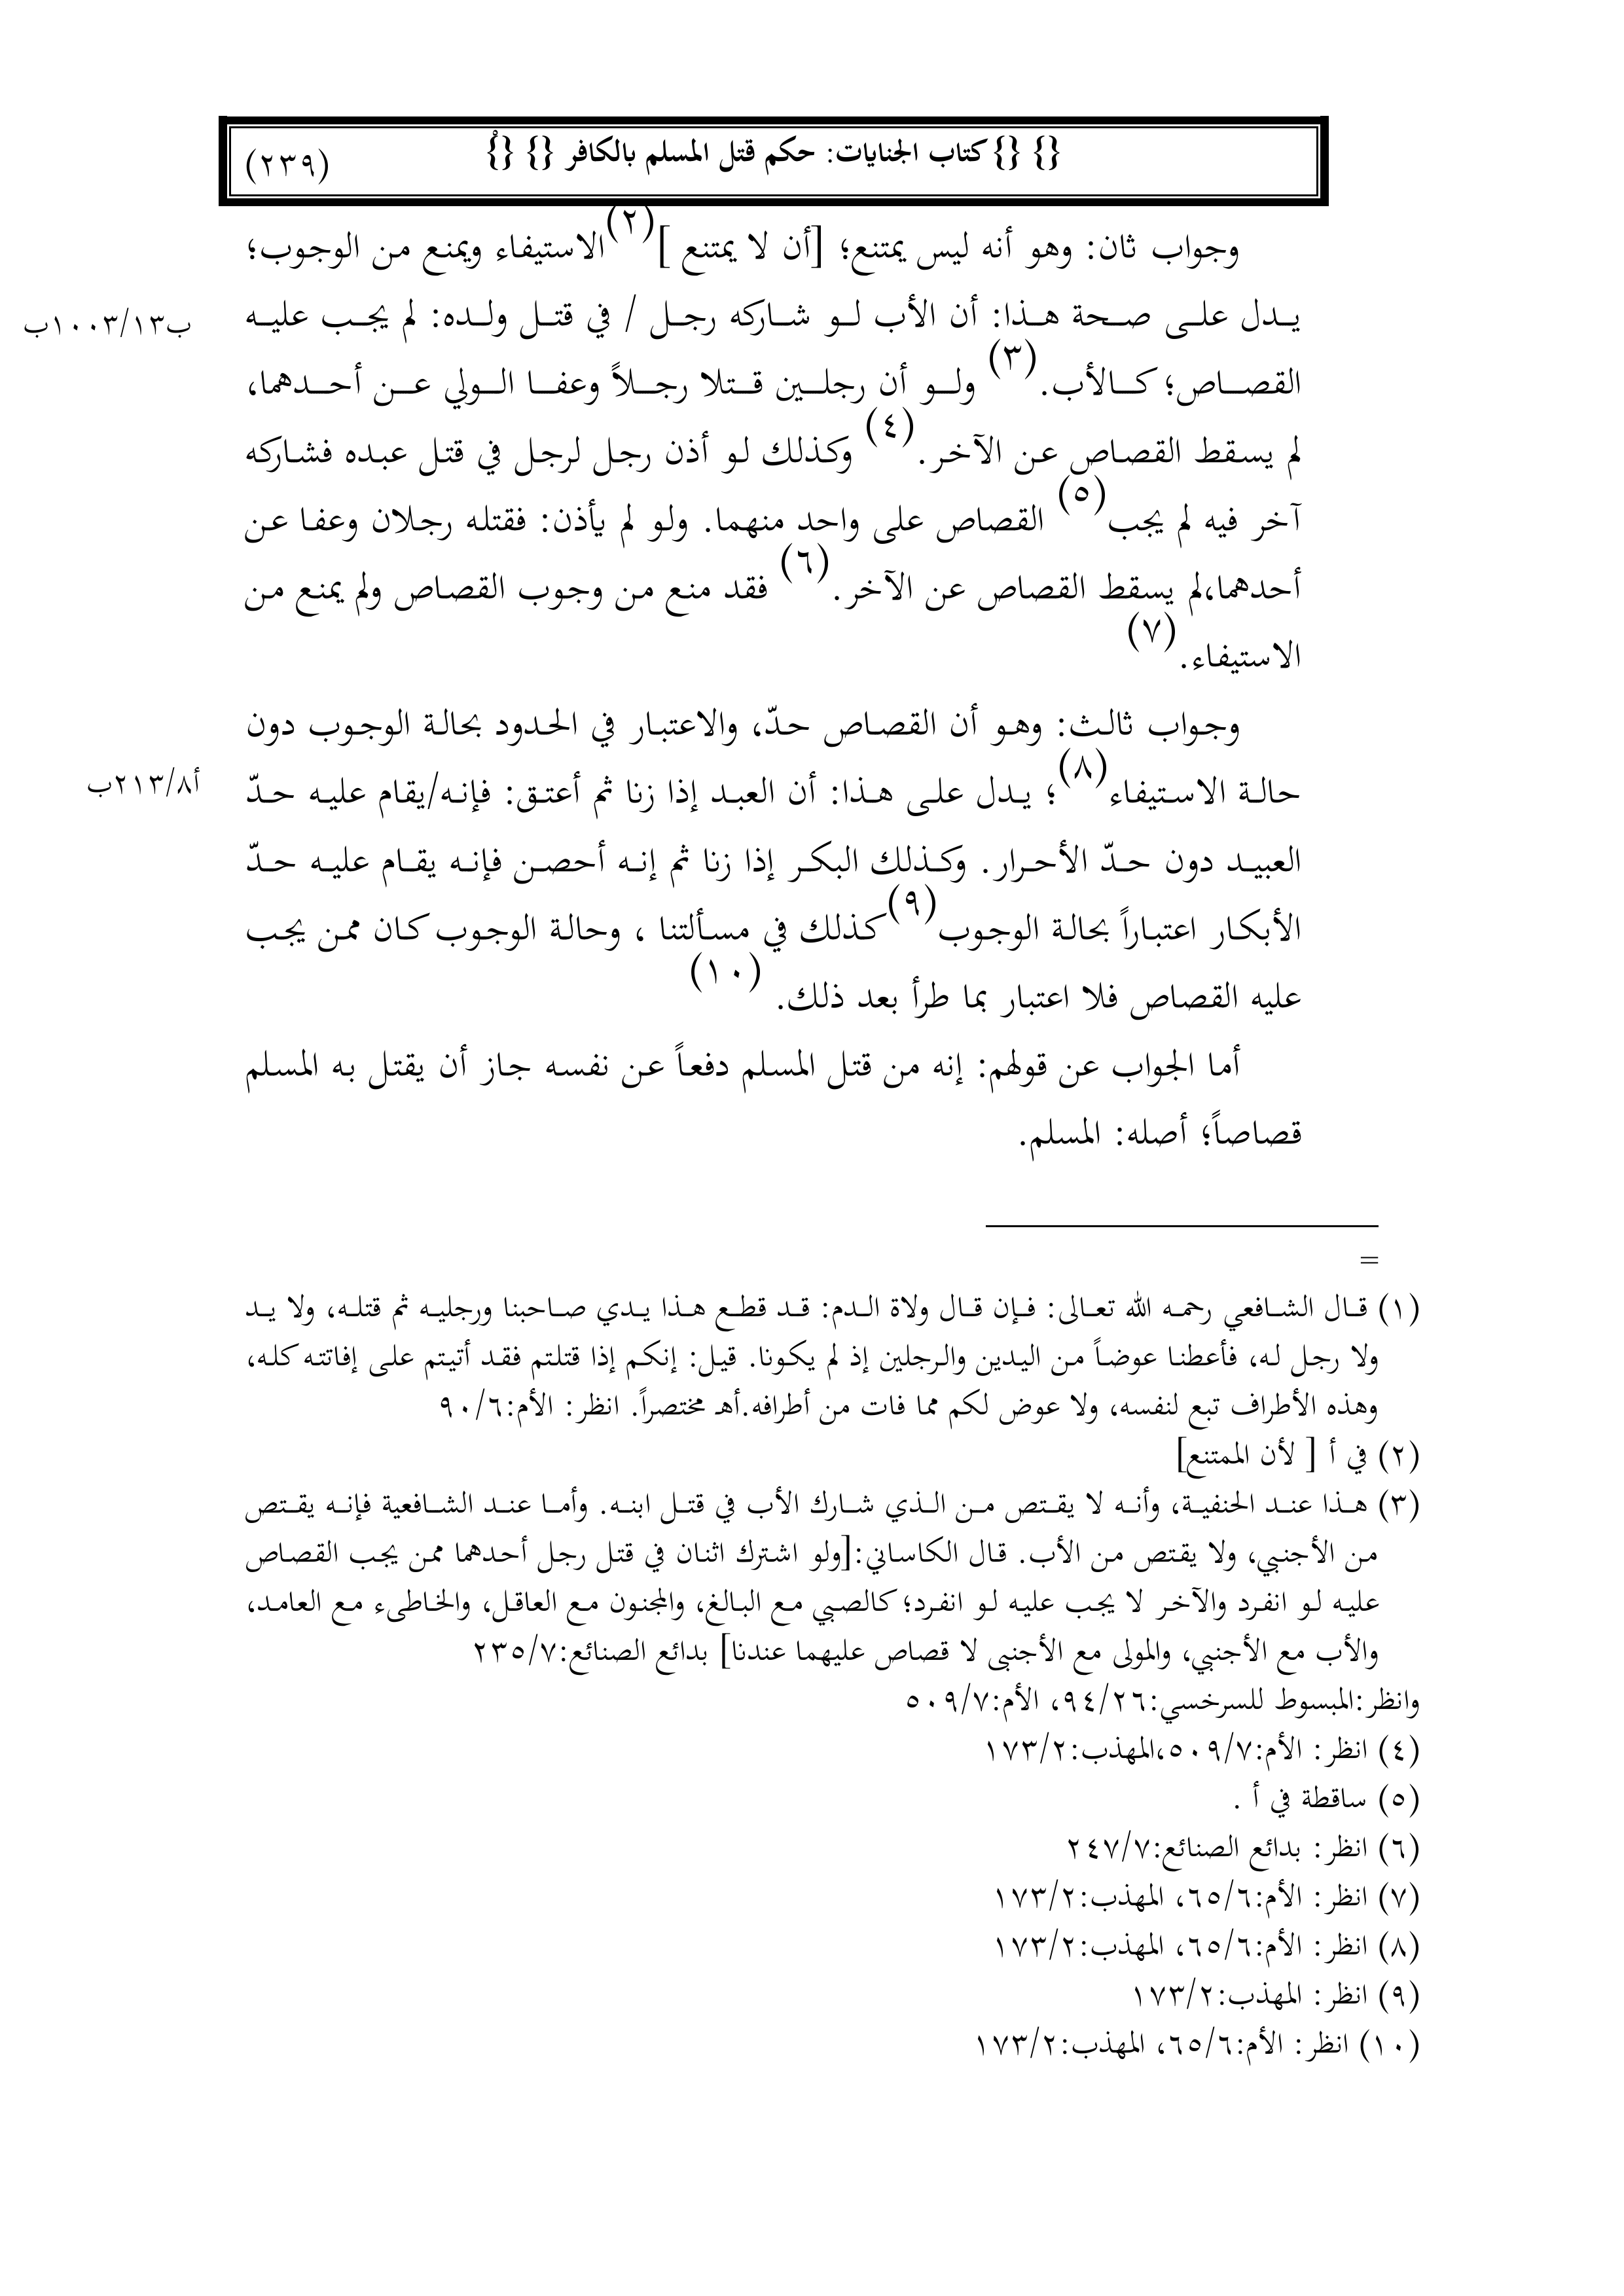 {} {} كتاب الجنايات: حكم قتل المسلم بالكافر {} {}أ
(٢٣٩)
وجواب ثان: وهو أنه ليس يمتنع؛ [أن لا يمتنع ](٢)الاستيفاء ويمنع من الوجوب؛
يدل على صحة هذا: أن الأب لو شاركه رجل / في قتل ولده: لم يجب عليه
ب١٠٠٣/١٣ب
القصاص؛ كالأب.(٣) ولو أن رجلين قتلا رجلاً وعفا الولي عن أحدهما،
لم يسقط القصاص عن الآخر.(٤) وكذلك لو أذن رجل لرجل في قتل عبده فشاركه
آخر فيه لم يجب(٥) القصاص على واحد منهما. ولو لم يأذن: فقتله رجلان وعفا عن
أحدهما،لم يسقط القصاص عن الآخر.(٦) فقد منع من وجوب القصاص ولم يمنع من
الاستيفاء.(٧)
وجواب ثالث: وهو أن القصاص حدّ، والاعتبار في الحدود بحالة الوجوب دون
حالة الاستيفاء(٨)؛ يدل على هذا: أن العبد إذا زنا ثم أعتق: فإنه/يقام عليه حدّ
أ٢١٣/٨ب
العبيد دون حدّ الأحرار. وكذلك البكر إذا زنا ثم إنه أحصن فإنه يقام عليه حدّ
الأبكار اعتباراً بحالة الوجوب(٩)كذلك في مسألتنا ، وحالة الوجوب كان ممن يجب
عليه القصاص فلا اعتبار بما طرأ بعد ذلك. (١٠)
أما الجواب عن قولهم: إنه من قتل المسلم دفعاً عن نفسه جاز أن يقتل به المسلم
قصاصاً؛ أصله: المسلم.
=
(١) قال الشافعي رحمه الله تعالى: فإن قال ولاة الدم: قد قطع هذا يدي صاحبنا ورجليه ثم قتله، ولا يد
ولا رجل له، فأعطنا عوضاً من اليدين والرجلين إذ لم يكونا. قيل: إنكم إذا قتلتم فقد أتيتم على إفاتته كله،
وهذه الأطراف تبع لنفسه، ولا عوض لكم مما فات من أطرافه.أهـ مختصراً. انظر: الأم:٩٠/٦
(٢) في أ [ لأن الممتنع]
(٣) هذا عند الحنفية، وأنه لا يقتص من الذي شارك الأب في قتل ابنه. وأما عند الشافعية فإنه يقتص
من الأجنبي، ولا يقتص من الأب. قال الكاساني:[ولو اشترك اثنان في قتل رجل أحدهما ممن يجب القصاص
عليه لو انفرد والآخر لا يجب عليه لو انفرد؛ كالصبي مع البالغ، والمجنون مع العاقل، والخاطىء مع العامد،
والأب مع الأجنبي، والمولى مع الأجنبى لا قصاص عليهما عندنا] بدائع الصنائع:٢٣٥/٧
وانظر:المبسوط للسرخسي:٩٤/٢٦، الأم:٥٠٩/٧
(٤) انظر: الأم:٥٠٩/٧،المهذب:١٧٣/٢
(٥) ساقطة في أ .
(٦) انظر: بدائع الصنائع:٢٤٧/٧
(٧) انظر: الأم:٦٥/٦، المهذب:١٧٣/٢
(٨) انظر: الأم:٦٥/٦، المهذب:١٧٣/٢
(٩) انظر: المهذب:١٧٣/٢
(١٠) انظر: الأم:٦٥/٦، المهذب:١٧٣/٢